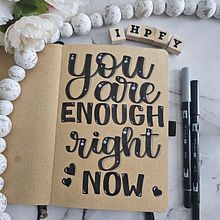 IHPFY
you
are
ENOUGH
right
NOW